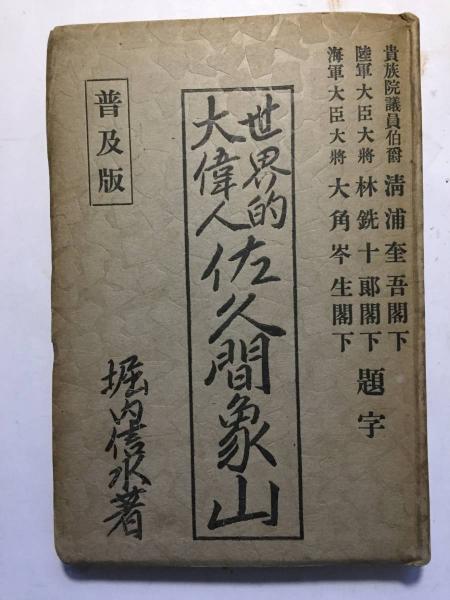 貴族院議員伯爵 清浦奎吾閣下
陸軍大臣大將 林銑十郎閣下 題字
海軍大臣大將 大角岑生閣下
世界的
大偉人
佐久間象山
普及版
堀内信水著